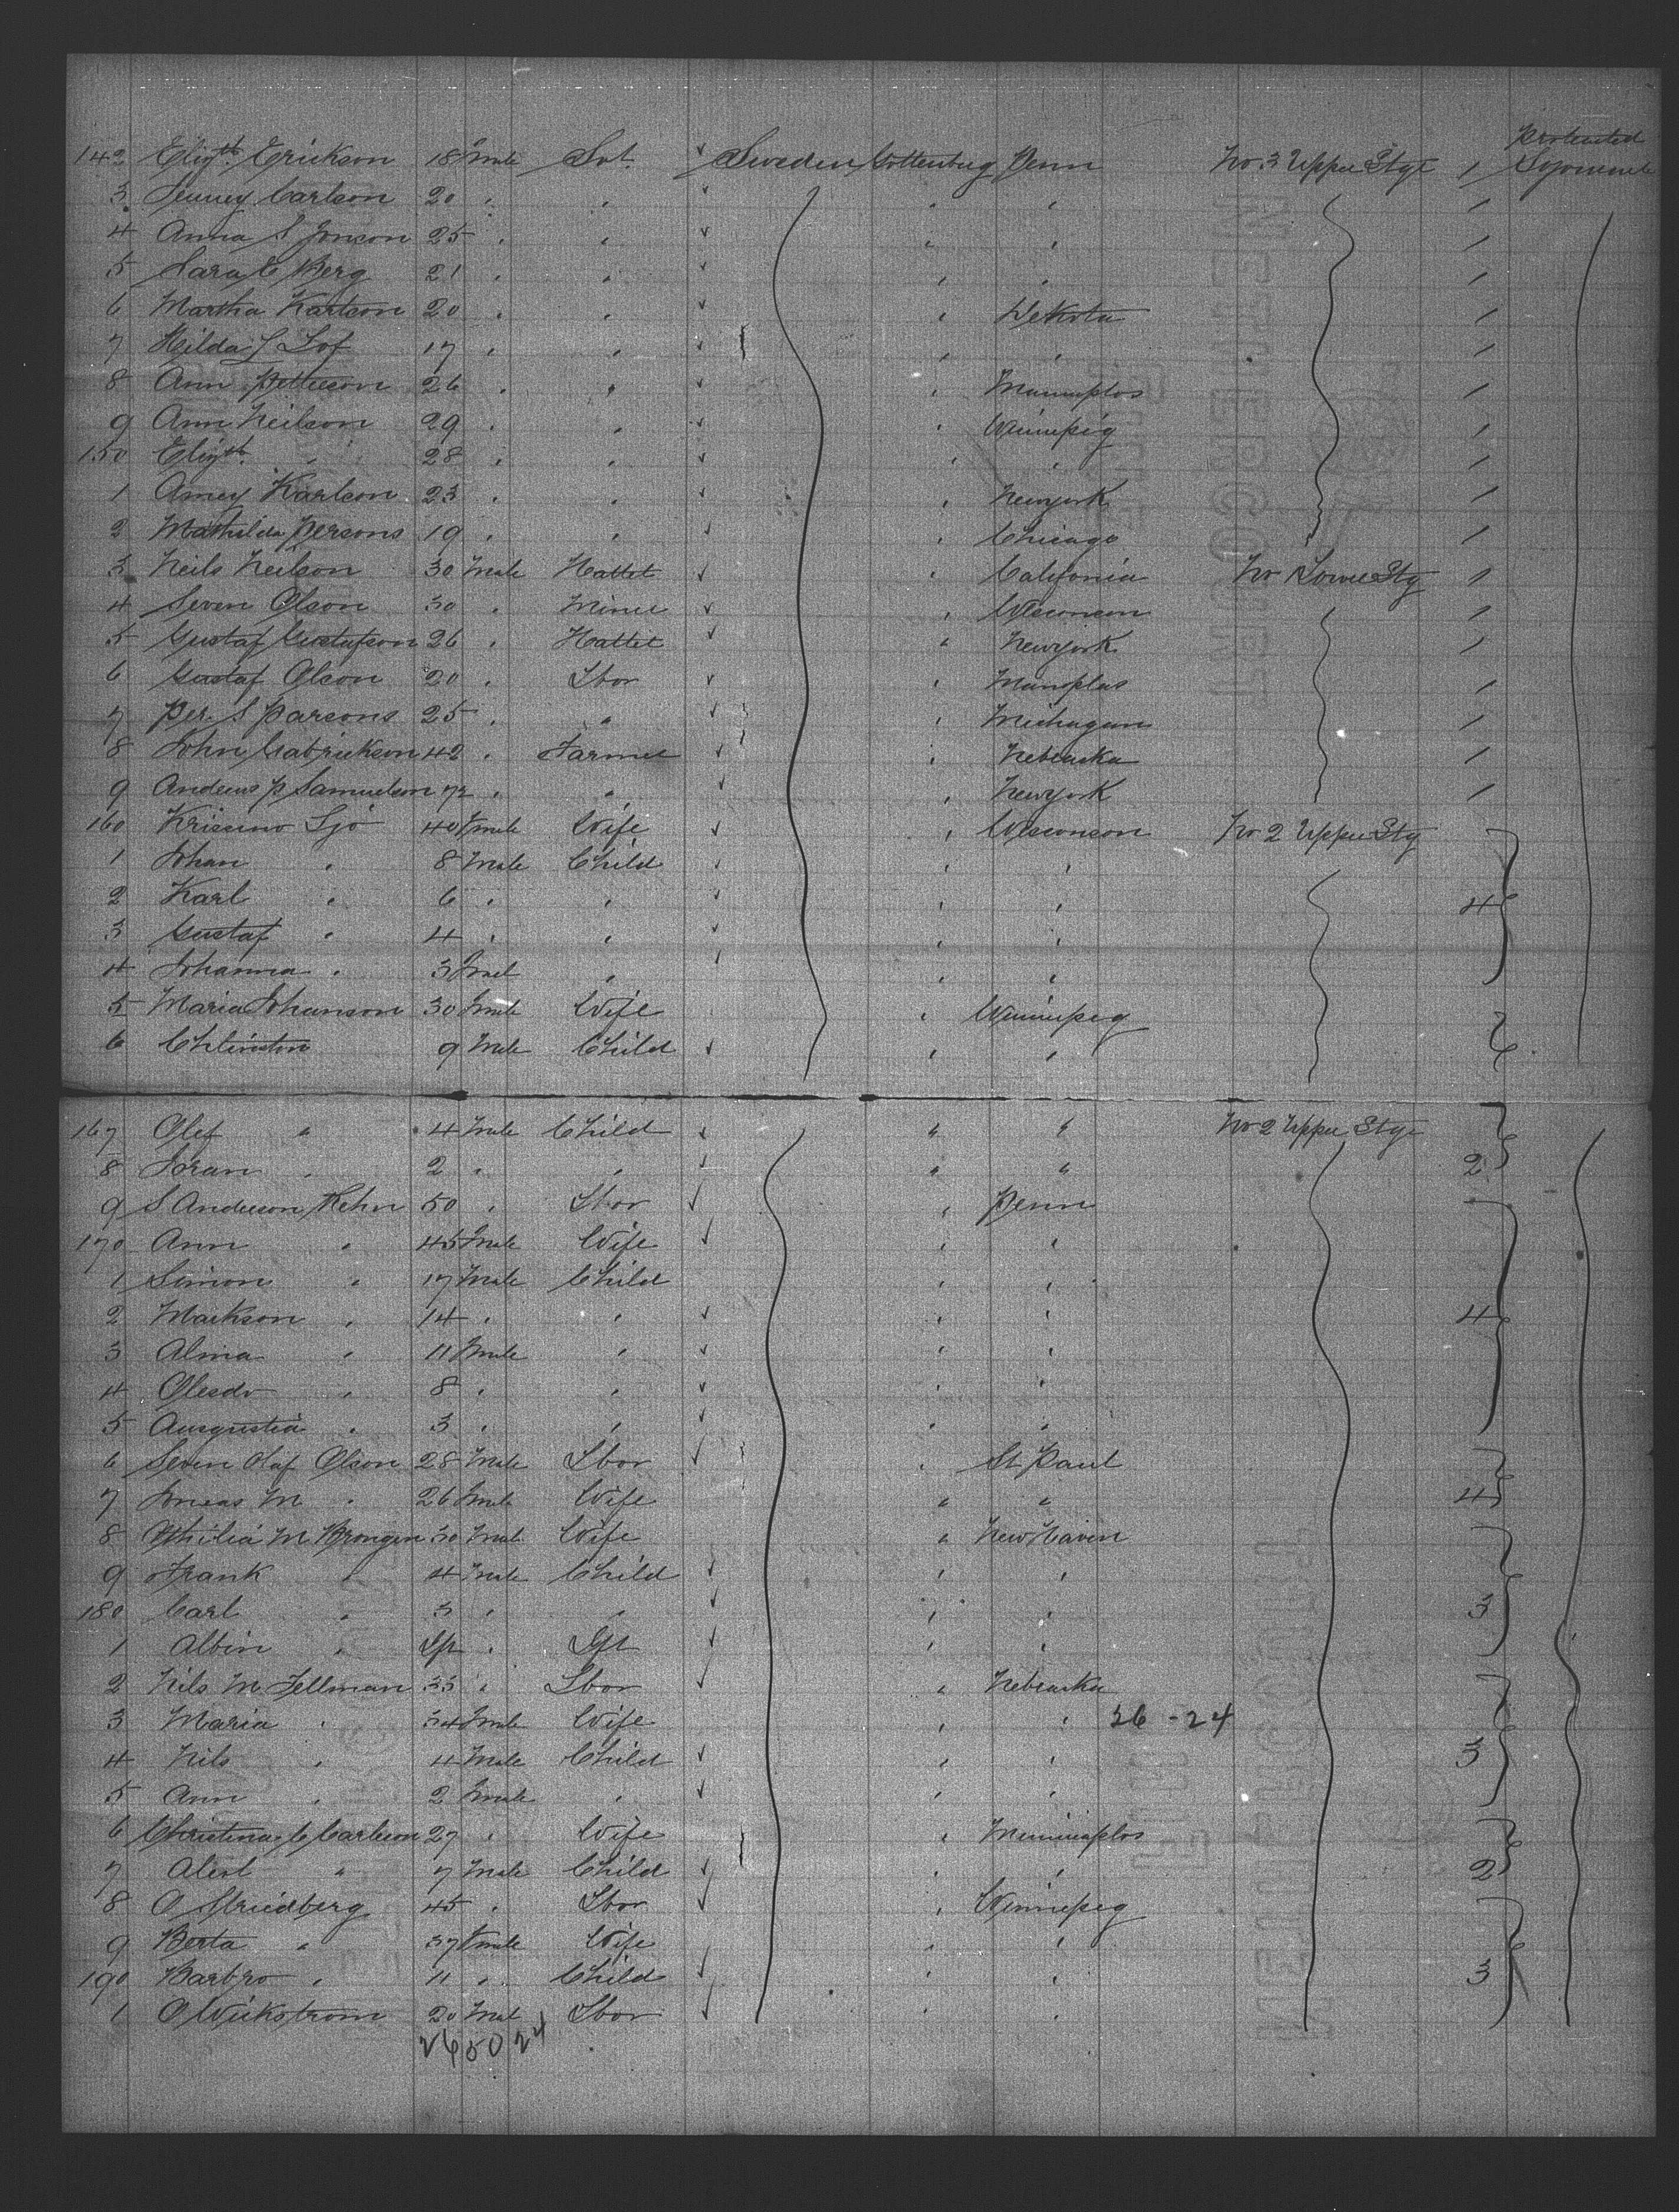 Protected
142 Elizth Erickson 18 Fmale Svt. ✓ Sweden Gottenburg Penn No 3 Upper Stge 1 Sojourner
3 Jenney Carlson 20 " " ✓ " " /
4 Anna S Jonson 25 " " ✓ " " /
5 Sara C Berg 21 " " ✓ " " /
6 Martha Karlson 20 " " ✓ " Dekota /
7 Hilda S Lof 17 " " ✓ " " /
8 Ann Petterson 26 " " ✓ " Minnaplos /
9 Ann Neilson 29 " " ✓ " Winnipeg /
150 Elizth " 28 " " ✓ " " /
1 Amey Karlson 23 " " ✓ " Newyork /
2 Mathilda Persons 19 " " ✓ " Chicago /
3 Neils Neilson 30 Male Hatter ✓ " Califonia No Lower Stg 1
4 Seven Olson 30 " Miner ✓ " Wisconson /
5 Gustaf Gustafson 26 " Hatter ✓ " Newyork /
6 Gustaf Olson 20 " Lbor ✓ " Minoplus /
7 Per. S Parsons 25 " " ✓ " Michagan /
8 John Gabrickson 42 " Farmer ✓ " Nebraska /
9 Andeus P Samuelson 72 " " ✓ " Newyork /
160 Sjo 40 Fmale Wife ✓ " Wisconson No 2 Upper Stg
1 Johan " 8 Male Child ✓ " "
2 Karl " 6 " " ✓ " " 4
3 Gustaf " 4 " " ✓ " "
4 Johanna " 3 Fmal " ✓ " "
5 Maria Johanson 30 Fmale Wife " Winnipeg
6 9 Male Child ✓ " "
167 Olef " 4 Male Child ✓ " " No 2 Upper Stge
8 Joran " 2 " " ✓ " " 2
9 S Anderson Rehn 50 " Lbor ✓ " Penn
170 Ann " 45 Fmale Wife ✓ " "
1 Simon " 17 Male Child " "
2 Markson " 14 " " ✓ " " 4
3 Alma " 11 Fmale " ✓ " "
4 Olesdo " 8 " " ✓ " "
5 Augustia " 3 " " ✓ " "
6 Seven Olaf Olson 28 Male Lbor ✓ " St Paul
7 M " 26 Fmale Wife " " 4
8 M 30 Fmale Wife " New Haven
9 Frank " 4 Male Child ✓ " "
180 Carl " 3 " " ✓ " " 3
1 Albin " " ✓ " "
2 Nils M. Fellman 35 " Lbor ✓ " Nebraska
3 Maria " 34 Fmale Wife " " 26 - 24
4 Nils " 4 Male Child ✓ " " 3
5 Ann " 2 Fmale " ✓ " "
6 Christina C Carlson 27 " Wife " Minniaplos
7 " 7 Male Child ✓ " " 2
8 O Stridberg 45 " Lbor ✓ " Winnipeg
9 Berta " 37 Fmale Wife " "
190 Barbro " 11 " Child ✓ " " 3
1 O Wickstrom 20 Mal Lbor ✓ " "
26 50 24